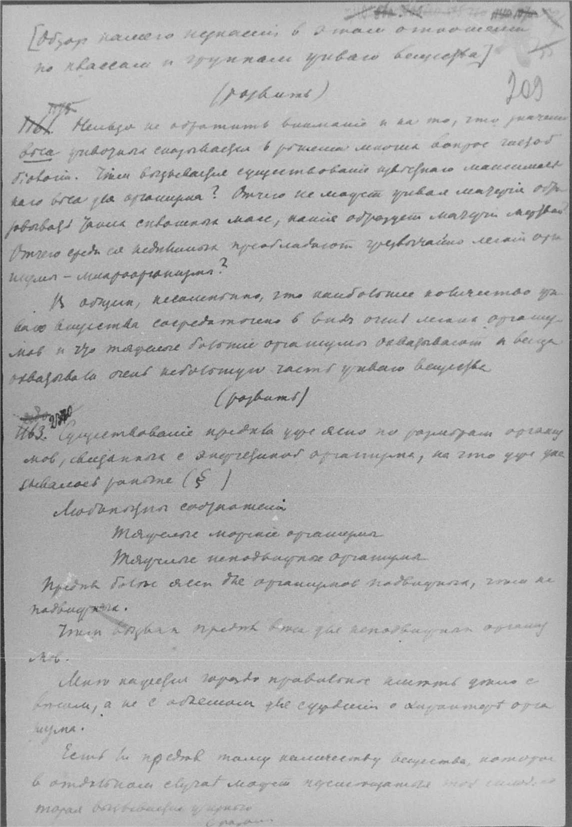 [Обзор нашего незнания в этом отношении
по классам и группам живого вещества]
(развить)
209
Нельзя не обратить внимания и на то, что значение
веса животных сказывается в решении многих вопросов
Чем вызывается существование максималь
ного веса для организма? Отчего не может живая материя обра
зовывать такие сплошные массы, какие образует материя мертвая?
Отчего среди ея неделимых преобладают чрезвычайно легкие орга
низмы – микроорганизмы?
В общем, несомненно, что наибольшее количество жи
вого вещества сосредоточено в виде очень легких организ
мов и что тяжелые большие организмы охватывают и всегда
охватывали очень небольшую часть живого вещества
(развить)
Существование предела уже ясно по размерам организ
мов, связанных с энергетикой организма, на что уже ука
зывалось раньше (§ )
Любопытны соотношения
Тяжелые морские организмы
Тяжелые неподвижные организмы
Предел более ясен для организмов подвижных, чем не
подвижных.
Чем вызван предел веса для неподвижных организ
мов.
Мне кажется гораздо правильнее иметь дело с
весом, а не с объемом для суждения о характере орга
низма.
Есть ли предел тому количеству вещества, которое
в отдельном случае может
торая